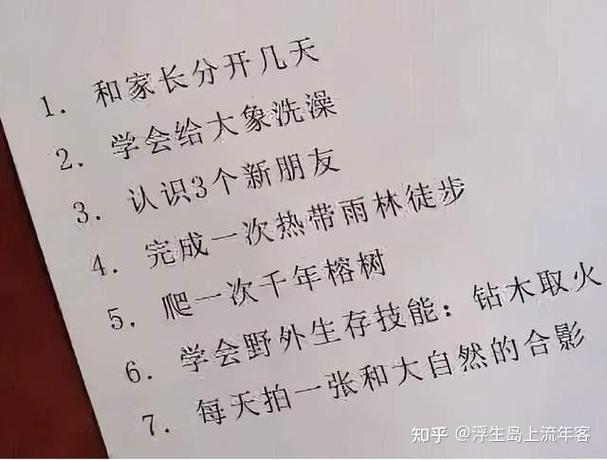 1. 和家长分开几天
2. 学会给大象洗澡
3. 认识3个新朋友
4. 完成一次热带雨林徒步
5. 爬一次千年榕树
6. 学会野外生存技能：钻木取火
7. 每天拍一张和大自然的合影
知乎 @浮生岛上流年客